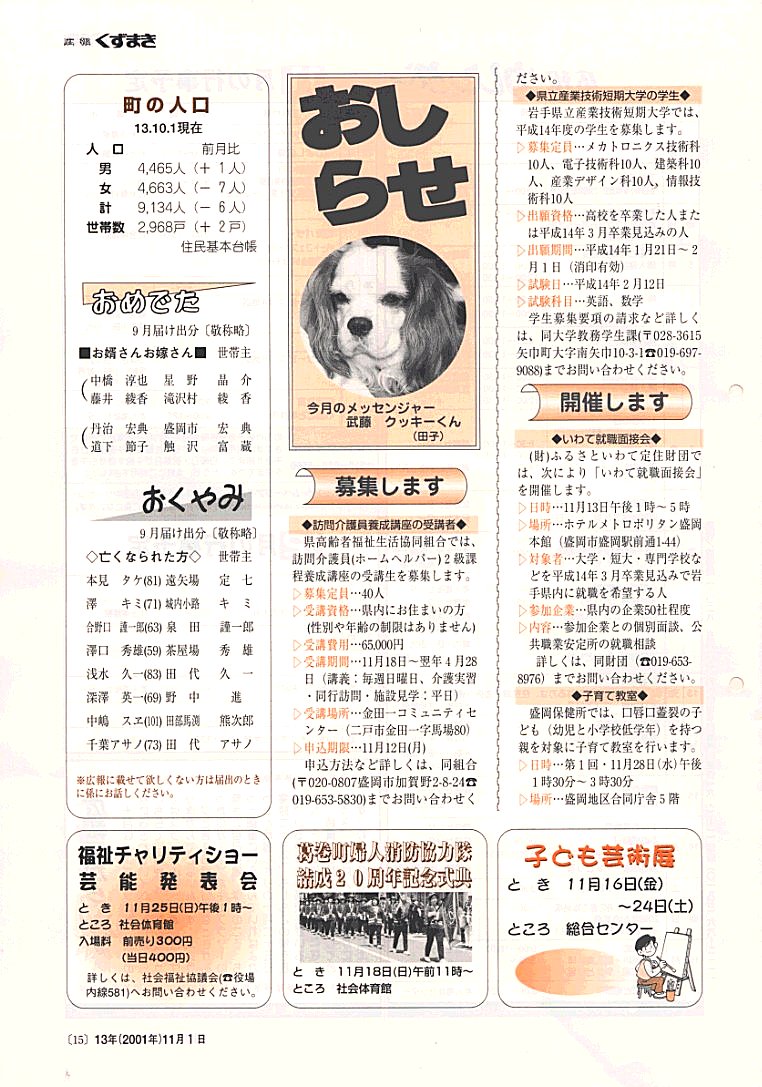 広報 くずまき
町の人口
13.10.1現在
人　口　　　前月比
男　4,465人（＋ 1人）
女　4,663人（－ 7人）
計　9,134人（－ 6人）
世帯数　2,968戸（＋ 2戸）
住民基本台帳
おめでた
9月届け出分〔敬称略〕
■お婿さんお嫁さん■　世帯主
中橋　淳也　星　野　晶　介
藤井　綾香　滝沢村　綾　香
丹治　宏典　盛岡市　宏　典
道下　節子　触　沢　富　蔵
おくやみ
9月届け出分〔敬称略〕
◇亡くなられた方◇　世帯主
本見　タケ(81) 遠矢場　定　七
澤　　キミ(71) 城内小路　キ　ミ
合野口　謹一郎(63) 泉　田　謹一郎
澤口　秀雄(59) 茶屋場　秀　雄
浅水　久一(83) 田　代　久　一
深澤　英一(69) 野　中　　進
中嶋　スヱ(101) 田部馬渕　熊次郎
千葉アサノ(73) 田　代　アサノ
※広報に載せて欲しくない方は届出のとき
に係にお話しください。
おし
らせ
今月のメッセンジャー
武藤　クッキーくん
（田子）
募集します
◆訪問介護員養成講座の受講者◆
県高齢者福祉生活協同組合では、
訪問介護員(ホームヘルパー)２級課
程養成講座の受講生を募集します。
▷募集定員…40人
▷受講資格…県内にお住まいの方
(性別や年齢の制限はありません)
▷受講費用…65,000円
▷受講期間…11月18日～翌年４月28
日（講義：毎週日曜日、介護実習
・同行訪問・施設見学：平日）
▷受講場所…金田一コミュニティセ
ンター（二戸市金田一字馬場80）
▷申込期限…11月12日(月)
申込方法など詳しくは、同組合
(〒020-0807盛岡市加賀野2-8-24☎
019-653-5830)までお問い合わせく
ださい。
◆県立産業技術短期大学の学生◆
岩手県立産業技術短期大学では、
平成14年度の学生を募集します。
▷募集定員…メカトロニクス技術科
10人、電子技術科10人、建築科10
人、産業デザイン科10人，情報技
術科10人
▷出願資格…高校を卒業した人また
は平成14年３月卒業見込みの人
▷出願期間…平成14年１月21日～２
月１日（消印有効）
▷試験日…平成14年２月12日
▷試験科目…英語、数学
学生募集要項の請求など詳しく
は、同大学教務学生課(〒028-3615
矢巾町大字南矢巾10-3-1☎019-697-
9088)までお問い合わせください。
開催します
◆いわて就職面接会◆
(財)ふるさといわて定住財団で
は、次により「いわて就職面接会」
を開催します。
▷日時…11月13日午後１時～５時
▷場所…ホテルメトロポリタン盛岡
本館（盛岡市盛岡駅前通1-44）
▷対象者…大学・短大・専門学校な
どを平成14年３月卒業見込みで岩
手県内に就職を希望する人
▷参加企業…県内の企業50社程度
▷内容…参加企業との個別面談、公
共職業安定所の就職相談
詳しくは、同財団（☎019-653-
8976）までお問い合わせください。
◆子育て教室◆
盛岡保健所では、口唇口蓋裂の子
ども（幼児と小学校低学年）を持つ
親を対象に子育て教室を行います。
▷日時…第１回・11月28日(水)午後
１時30分～３時30分
▷場所…盛岡地区合同庁舎５階
福祉チャリティショー
芸能発表会
と　き　11月25日(日)午後１時～
ところ 社会体育館
入場料　前売り300円
(当日400円)
詳しくは、社会福祉協議会(☎役場
内線581)へお問い合わせください。
葛巻町婦人消防協力隊
結成２０周年記念式典
と　き　11月18日(日)午前11時～
ところ　社会体育館
子ども芸術展
と　き　11月16日(金)
～24日(土)
ところ　総合センター
〔15〕13年(2001年)11月１日